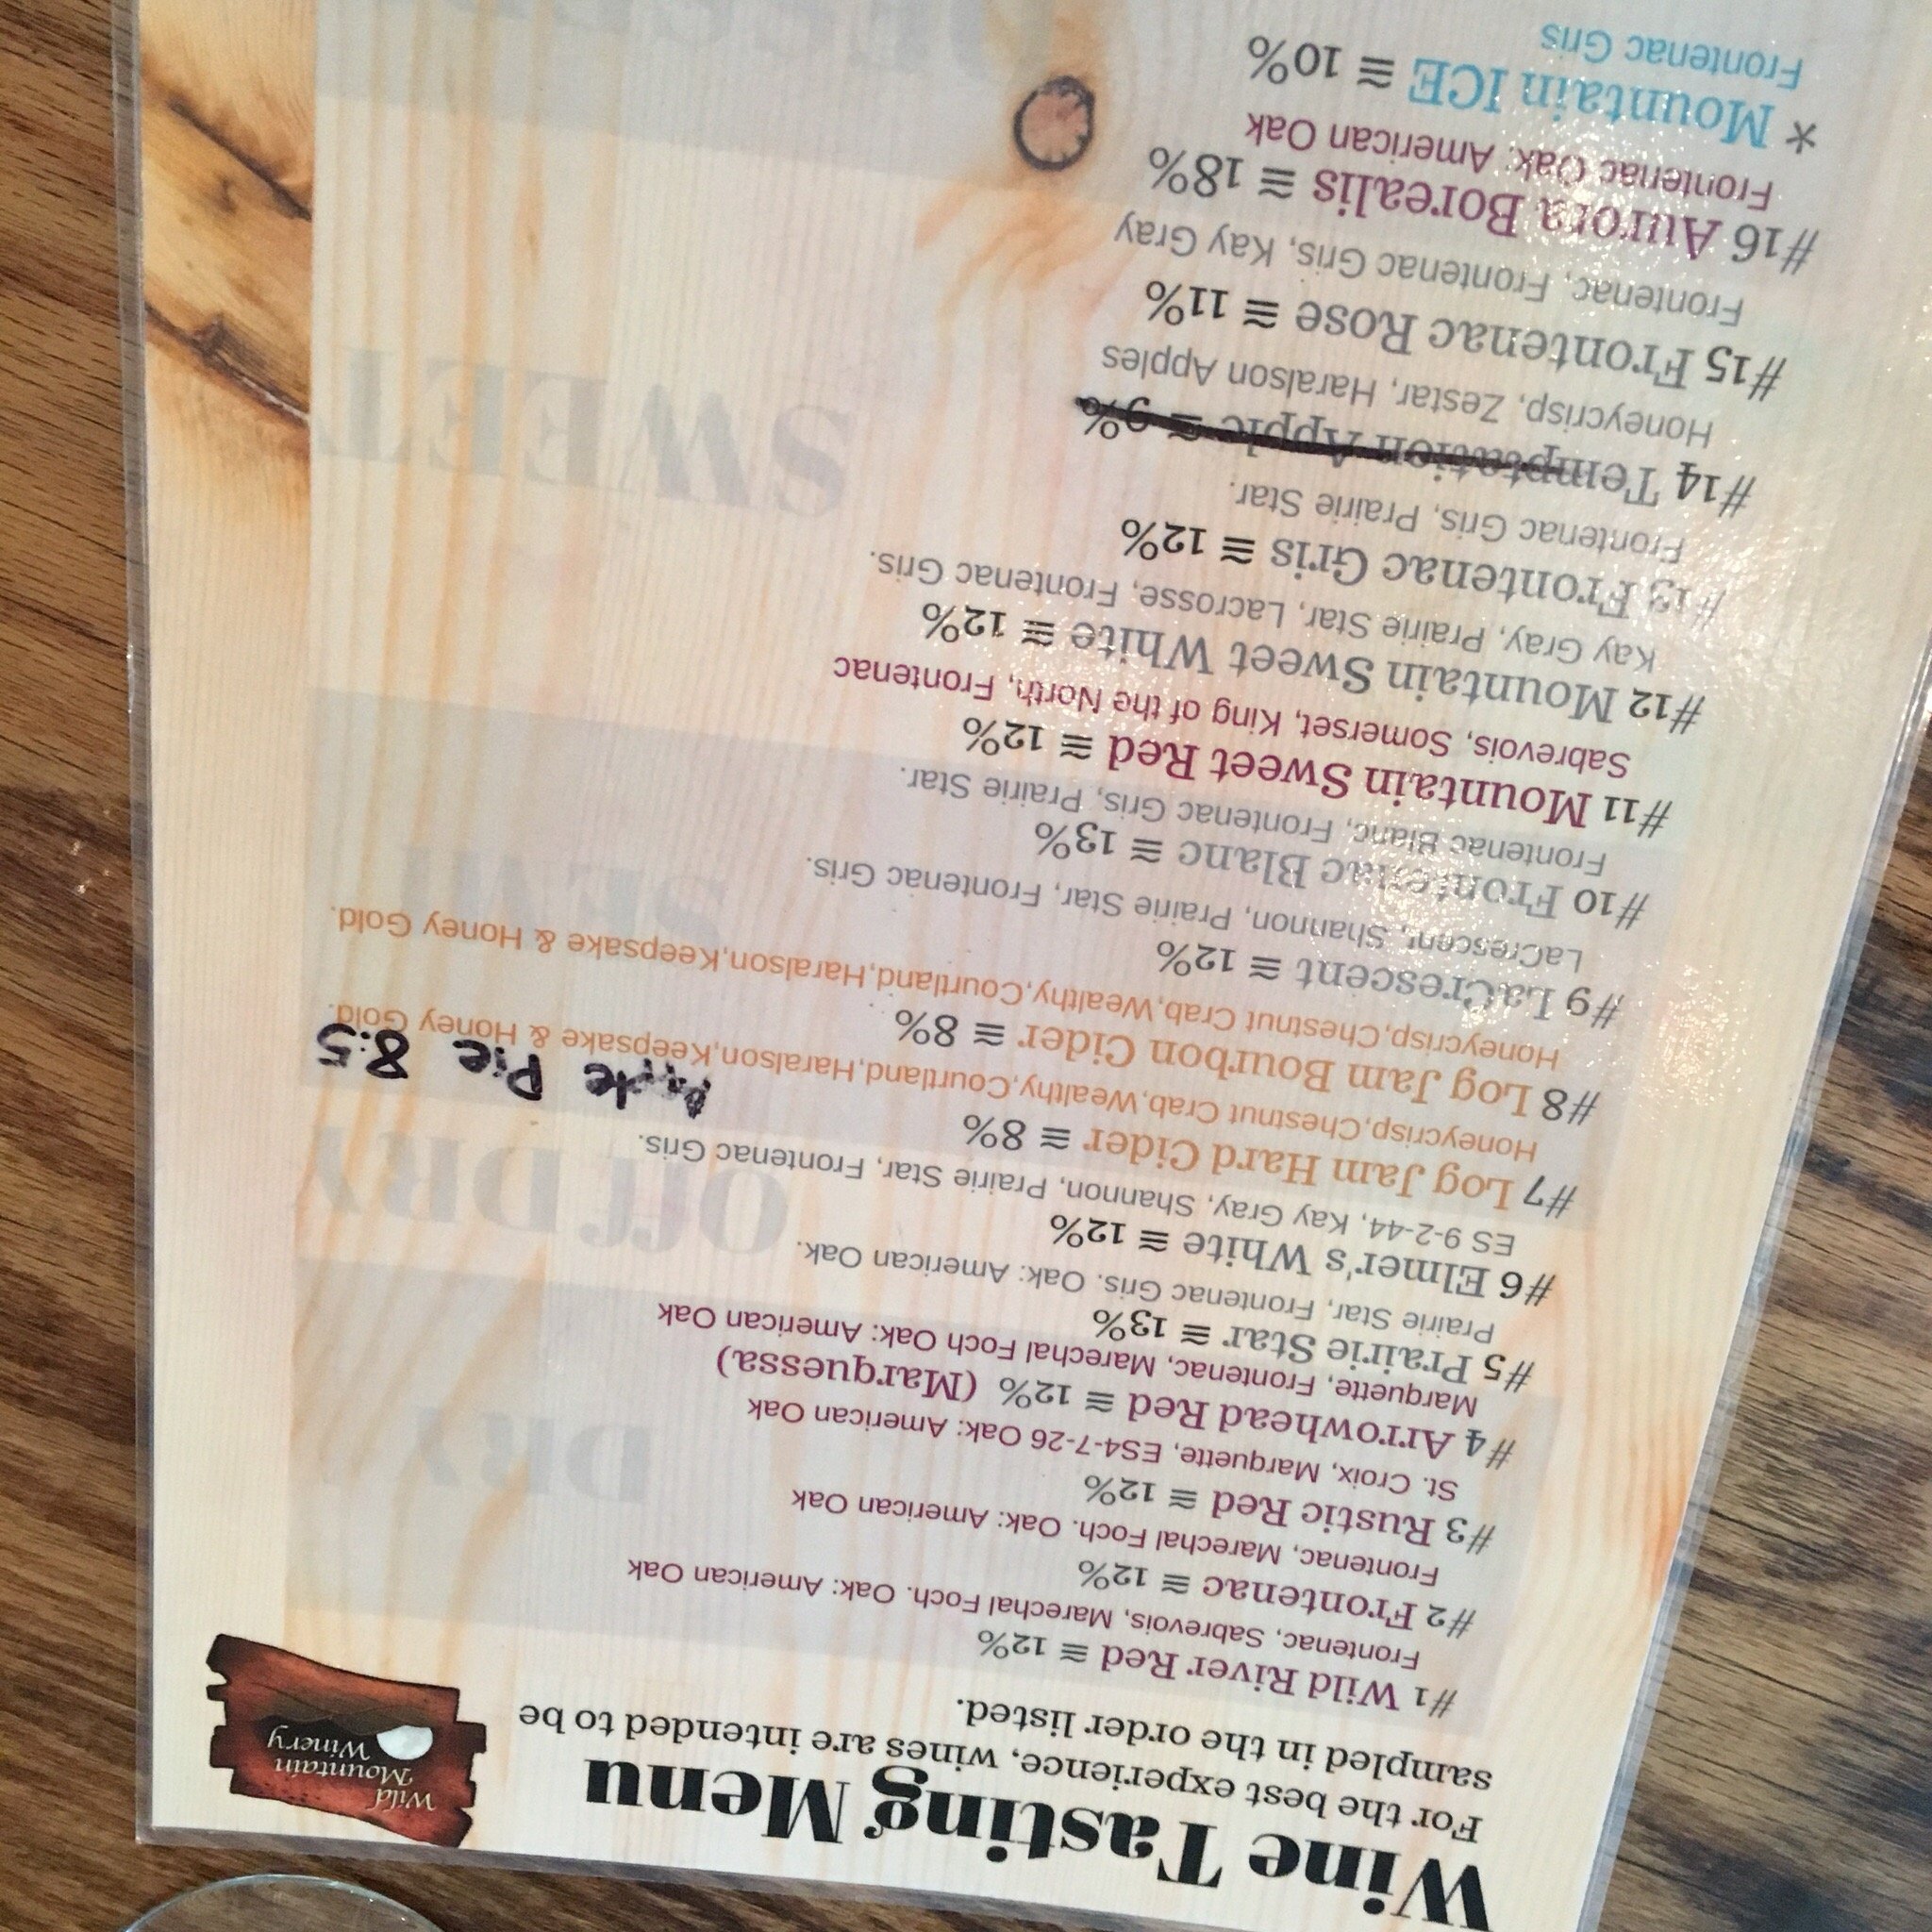 Wine Tasting Menu
For the best experience, wines are intended to be
sampled in the order listed.
Wild
Mountain
Winery
#1 Wild River Red ≅ 12%
Frontenac, Sabrevois, Marechal Foch. Oak: American Oak
#2 Frontenac ≅ 12%
Frontenac, Marechal Foch. Oak: American Oak
#3 Rustic Red ≅ 12%
St. Croix, Marquette, ES4-7-26 Oak: American Oak
#4 Arrowhead Red ≅ 12% (Marquessa)
Marquette, Frontenac, Marechal Foch Oak: American Oak
DRY
#5 Prairie Star ≅ 13%
Prairie Star, Frontenac Gris. Oak: American Oak.
#6 Elmer's White ≅ 12%
ES 9-2-44, Kay Gray, Shannon, Prairie Star, Frontenac Gris.
Off DRY
#7 Log Jam Hard Cider ≅ 8%
Apple Pie 8.5
Honeycrisp,Chestnut Crab,Wealthy,Courtland,Haralson,Keepsake & Honey Gold.
#8 Log Jam Bourbon Cider ≅ 8%
Honeycrisp,Chestnut Crab,Wealthy,Courtland,Haralson,Keepsake & Honey Gold.
#9 LaCrescent ≅ 12%
LaCrescent, Shannon, Prairie Star, Frontenac Gris.
SEMI
#10 Frontenac Blanc ≅ 13%
Frontenac Blanc, Frontenac Gris, Prairie Star.
#11 Mountain Sweet Red ≅ 12%
Sabrevois, Somerset, King of the North, Frontenac
#12 Mountain Sweet White ≅ 12%
Kay Gray, Prairie Star, Lacrosse, Frontenac Gris.
#13 Frontenac Gris ≅ 12%
Frontenac Gris, Prairie Star.
SWEET
#14 Temptation Apple ≅ 9%
Honeycrisp, Zestar, Haralson Apples
#15 Frontenac Rose ≅ 11%
Frontenac, Frontenac Gris, Kay Gray
#16 Aurora Borealis ≅ 18%
Frontenac Oak: American Oak
* Mountain ICE ≅ 10%
Frontenac Gris